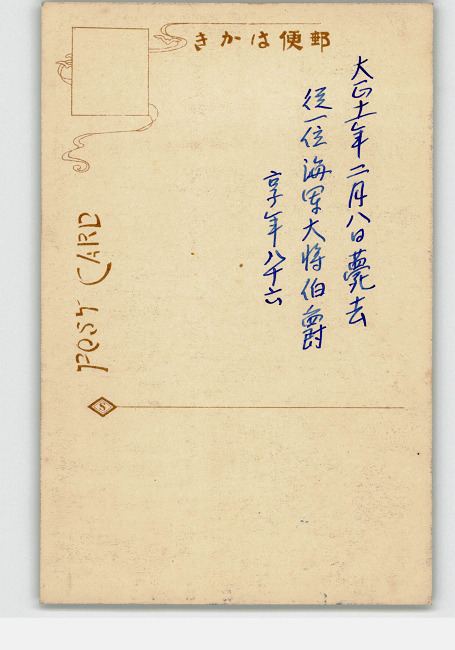 郵便はかき
大正十一年二月八日薨去
従一位海軍大将伯爵
享年八十六
POST CARD
S